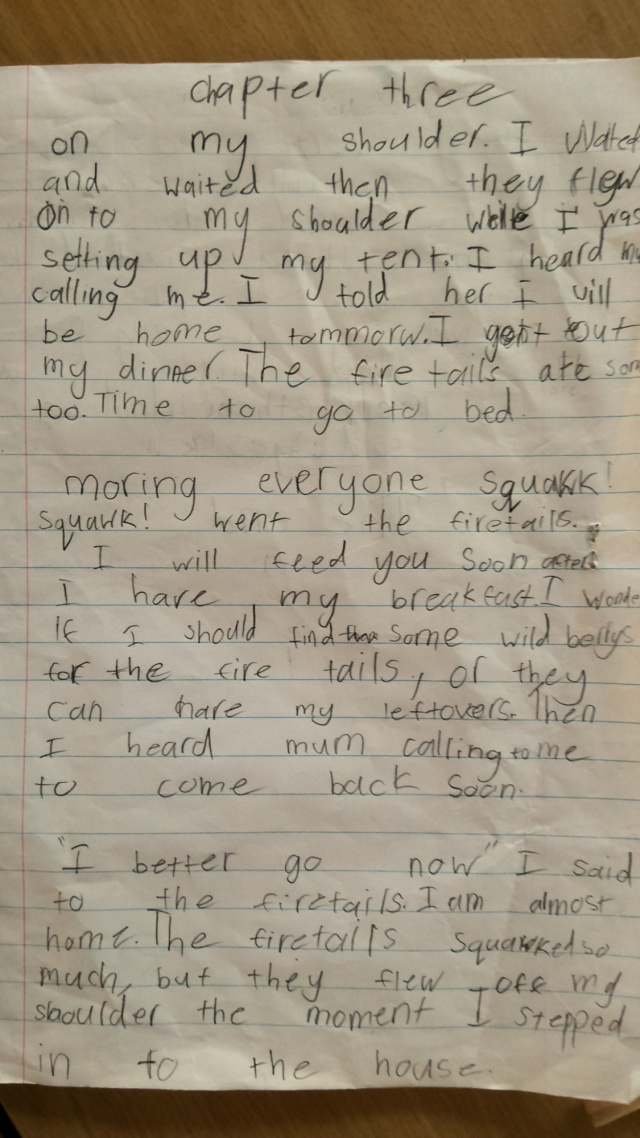 chapter three
on my shoulder. I Wated
and waited then they flew
on to my shoulder wile I was
setting up my tent. I heard
calling me. I told her I will
be home tommorw. I got out
my dinner. The fire tails ate som
too. Time to go to bed.
moring everyone squakk!
squawk! went the firetails.
I will feed you soon after
I have my breakfast. I wonde
If I should find some wild bellys
for the fire tails, or they
can have my leftovers. Then
I heard mum calling to me
to come back soon.
"I better go now" I said
to the firetails. I am almost
home. The firetails squawked so
much, but they flew off my
shoulder the moment I stepped
in to the house.